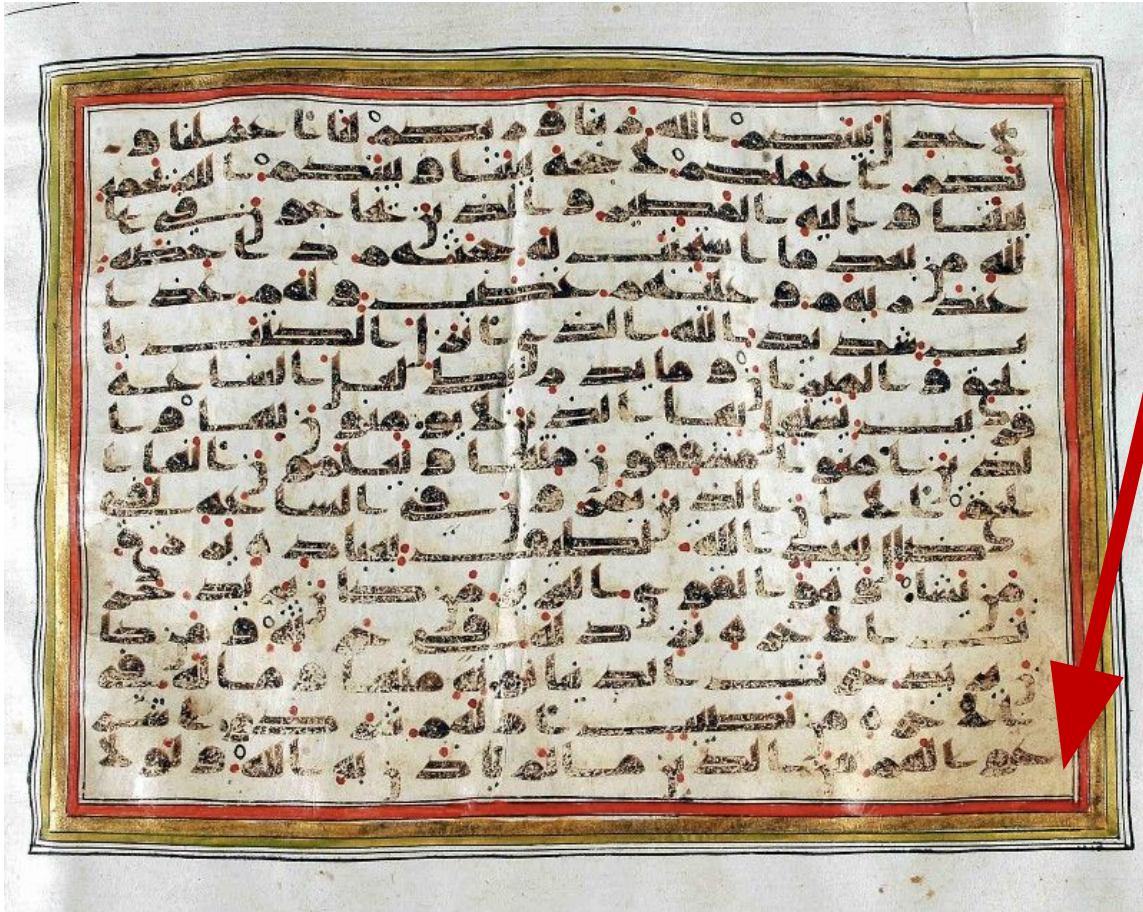 لاعدل بينكم الله ربنا وربكم لنا اعملنا و
لكم اعملكم لا حجة بيننا وبينكم الله يجمع
بيننا واليه المصير والذين يحاجون في ا
لله من بعد ما استجيب له حجتهم داحضة
عند ربهم وعليهم غضب ولهم عذا
ب شديد الله الذي انزل الكتب با
لحق والميزان وما يدريك لعل الساعة
قريب يستعجل بها الذين لا يومنون بها وا
لذين امنوا مشفقون منها ويعلمون انها ا
لحق الا ان الذين يمارون في الساعة لفي
ضلل بعيد الله لطيف بعباده يرزق
من يشا وهو القوي العزيز من كان يريد حر
ث الاخرة نزد له في حرثه ومن كا
ن يريد حرث الدنيا نوته منها وما له في
الاخرة من نصيب ام لهم شركوا شر
عوا لهم من الدين ما لم ياذن به الله ولولا